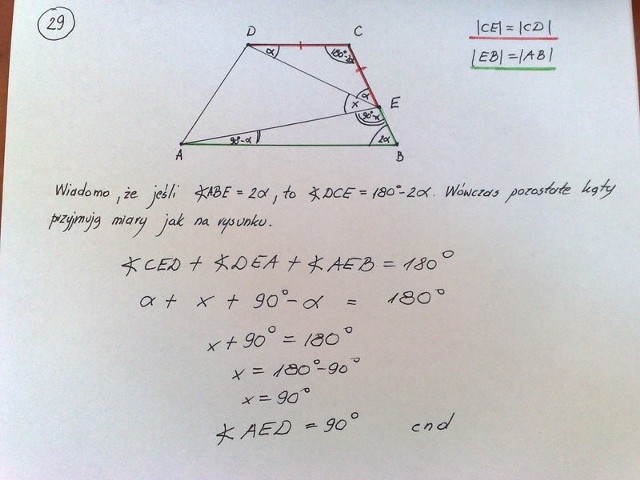 29
|CE| = |CD|
|EB| = |AB|
D
C
α
180°-2α
α
x
E
90°-α
90°-α
2α
A
B
Wiadomo, że jeśli ∡ABE = 2α, to ∡DCE = 180°-2α. Wówczas pozostałe kąty
przyjmują miary jak na rysunku.
∡CED + ∡DEA + ∡AEB = 180°
α + x + 90°-α = 180°
x + 90° = 180°
x = 180°-90°
x = 90°
∡AED = 90° cnd